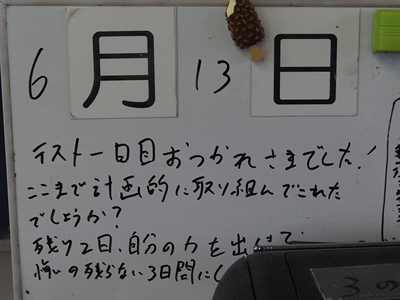 6月13日
テスト一日目おつかれさまでした!
ここまで計画的に取り組んでこれた
でしょうか?
残り2日、自分の力を出し
悔いの残らない3日間に
3の